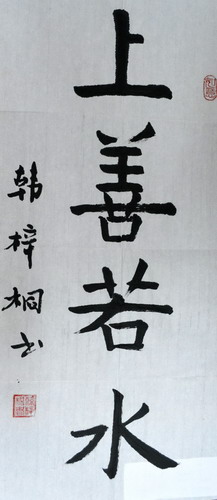 上善若水
韩梓桐书